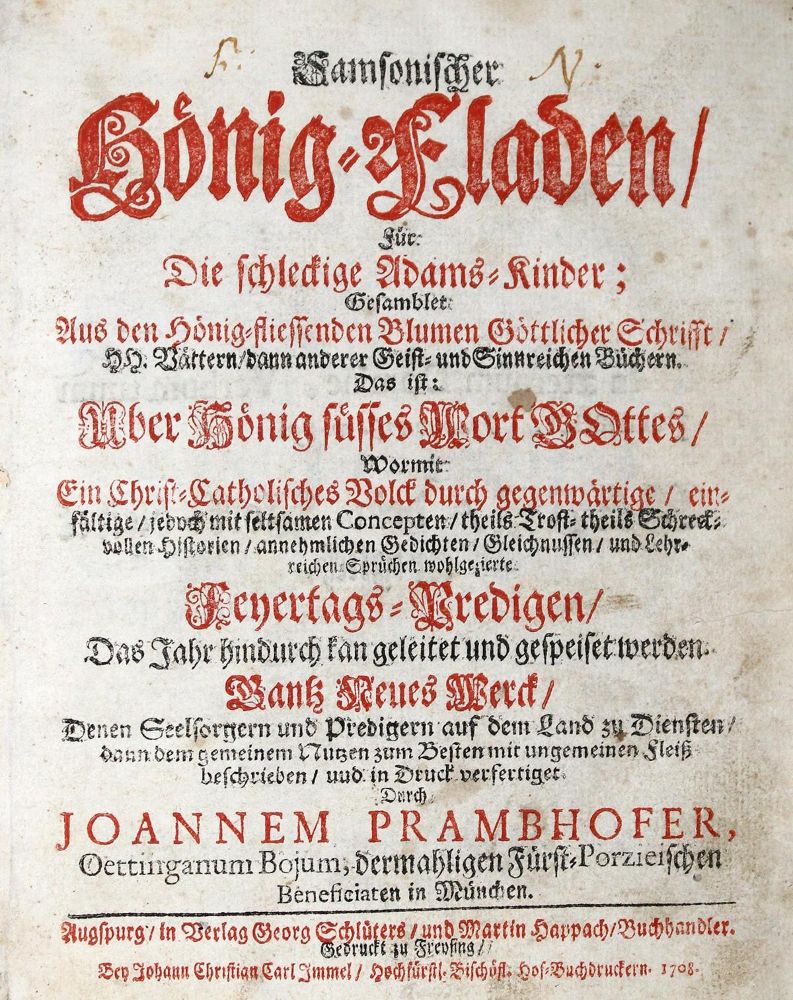 F. N.
Samsonischer
Hönig-Fladen/
Für
Die schleckige Adams-Kinder;
Gesamblet
Aus den Hönig-fliessenden Blumen Göttlicher Schrifft/
HH. Vättern/dann anderer Geist- und Sinnreichen Büchern.
Das ist:
Uber Hönig süsses Wort GOttes/
Wormit
Ein Christ-Catholisches Volck durch gegenwärtige/ ein-
fältige/jedoch mit seltsamen Concepten/theils Trost- theils Schreck-
vollen Historien/annehmlichen Gedichten/Gleichnussen/und Lehr-
reichen Sprüchen wohlgezierte
Feyertags-Predigen/
Das Jahr hindurch kan geleitet und gespeiset werden.
Gantz Neues Werck/
Denen Seelsorgern und Predigern auf dem Land zu Diensten/
dann dem gemeinem Nutzen zum Besten mit ungemeinen Fleiß
beschrieben/ und in Druck verfertiget
Durch
JOANNEM PRAMBHOFER,
Oettinganum Bojum, dermahligen Fürst-Porzieischen
Beneficiaten in München.
Augspurg/in Verlag Georg Schlüters/und Martin Happach/Buchhandler.
Gedruckt zu Freysing/
Bey Johann Christian Carl Immel/ Hochfürstl. Bischöfl. Hof-Buchdruckern. 1708.